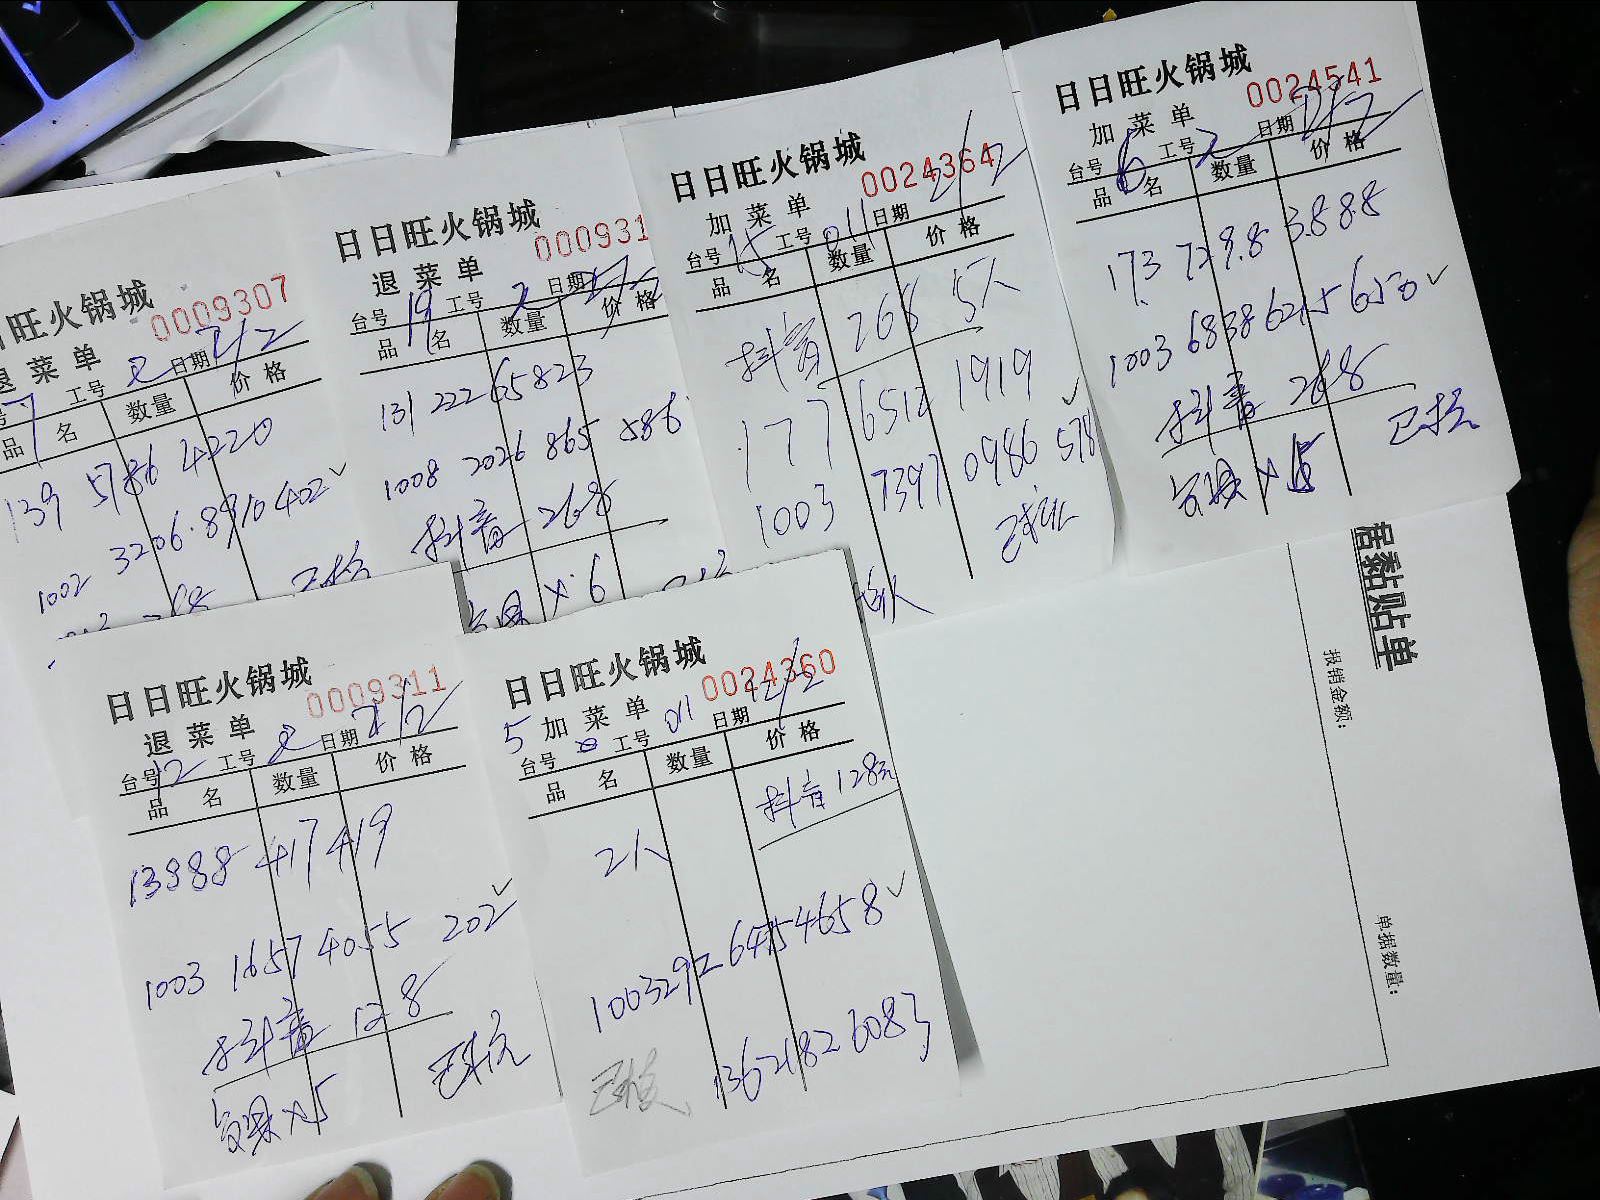 日旺火锅城
0009307
退菜单
工号 2 日期 2/2
品 名 数量 价格
139 5786 4220
1002 3206.8910402✓
268 已核
日日旺火锅城
000931
退菜单
台号 19 工号 2 日期 2/2
品 名 数量 价格
131 222 65823
1008 2026 865 586
抖音 268
×6
日日旺火锅城
0024364
加菜单
台号 15 工号 011 日期 2/2
品 名 数量 价格
抖音 268 5人
177 6512 1919
1003 7397 0986 578✓
日日旺火锅城
0024541
加菜单
台号 6 工号 2 日期 2/2
品 名 数量 价格
173 729.8 3888
1003 6838 6215 6530✓
抖音 268
已核
日日旺火锅城
0009311
退菜单
台号 12 工号 2 日期 2/2
品 名 数量 价格
13988 417419
1003 1657 4055 202✓
抖音 128
已核
日日旺火锅城
0024360
5 加菜单
台号 工号 011 日期 2/2
品 名 数量 价格
抖音 128元
2人
1003292 64754658✓
13621826083
已核
居黏贴单
报销金额：
单据数量：